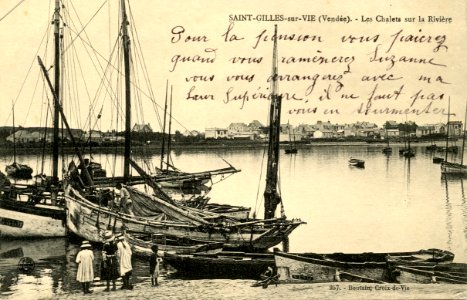 SAINT-GILLES-sur-VIE (Vendée). - Les Chalets sur la Rivière
Pour la pension vous paierez
quand vous ramènerez Suzanne
vous vous arrangerez avec ma
Sœur Supérieure, il ne faut pas
vous en tourmenter
Croix-de-Vie